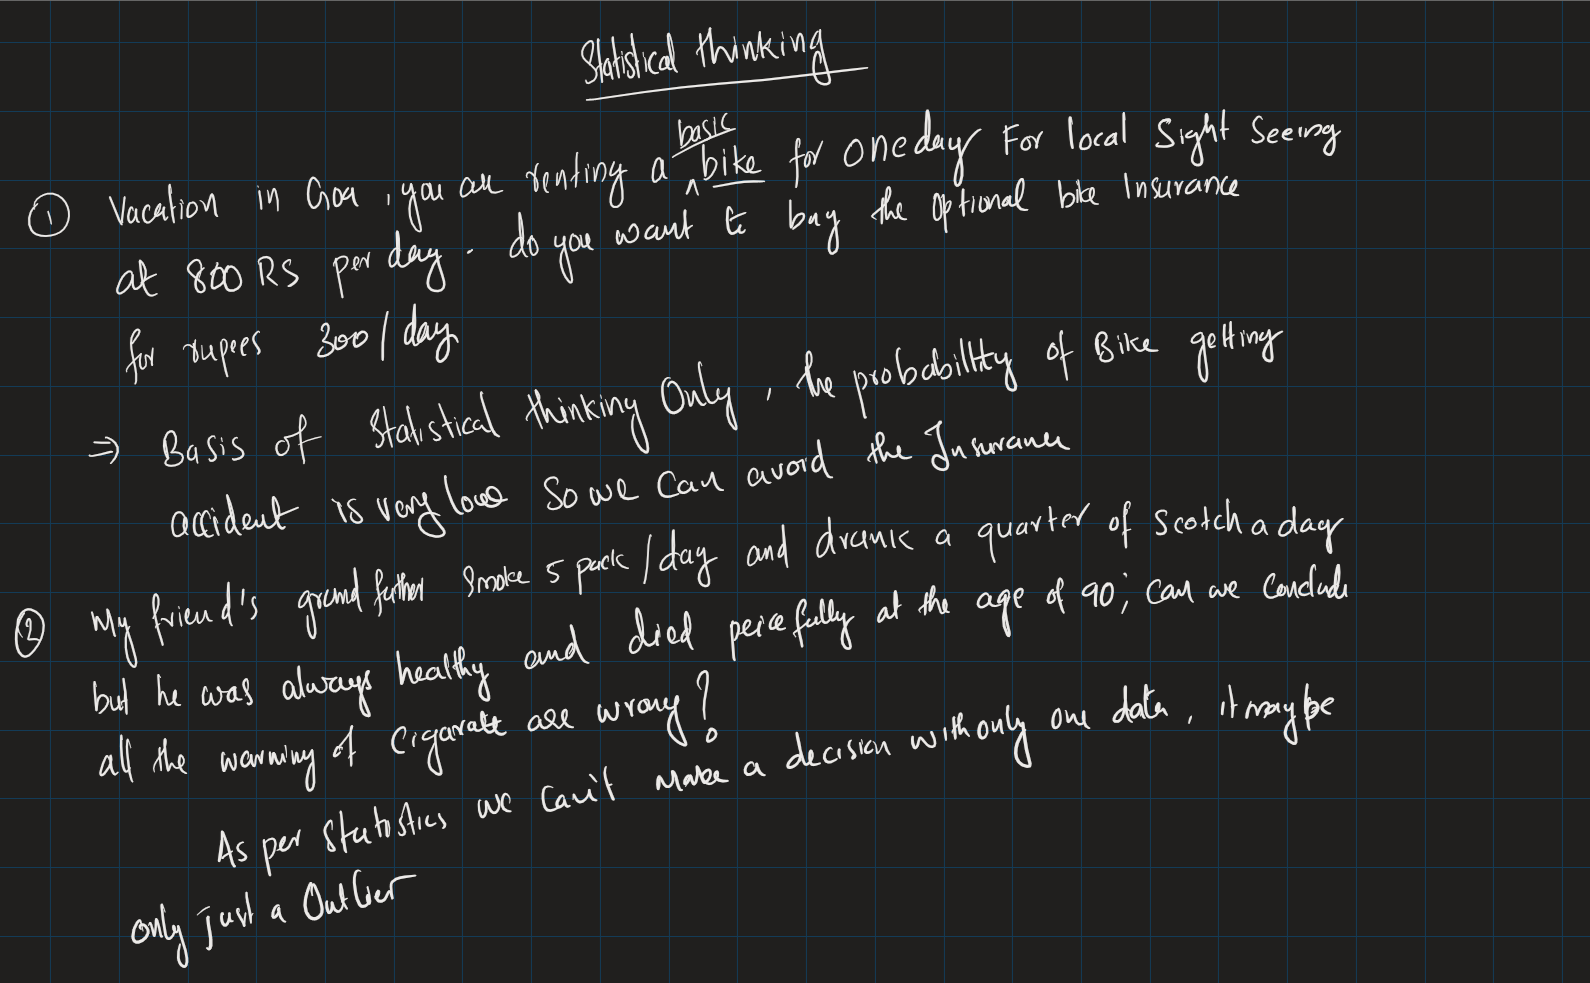 Statistical thinking
① Vacation in Goa, you are renting a basic bike for one day For local Sight Seeing
at 800 RS per day. do you want to buy the optional bike Insurance
for rupees 300/day
⇒ Basis of Statistical thinking Only, the probability of Bike getting
accident is very low So we can avoid the Insurance
② My friend's grand father Smoke 5 pack/day and drank a quarter of scotch a day
but he was always healthy and died peicefully at the age of 90; Can we Conclude
all the warning of Cigarate are wrong?
As per Statistics we can't make a decision with only one data, it maybe
only just a Outlier